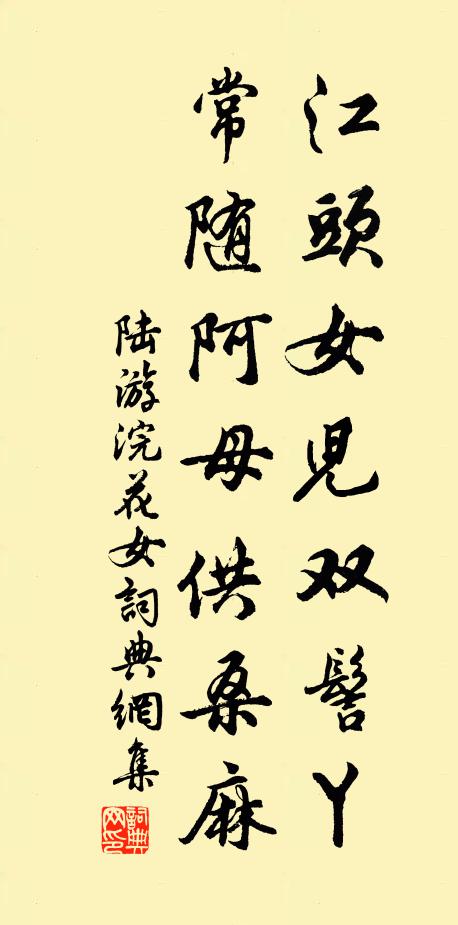 江頭女児双髻丫
常随阿母供桑麻
陆游浣花女詞典網集
詞典網印